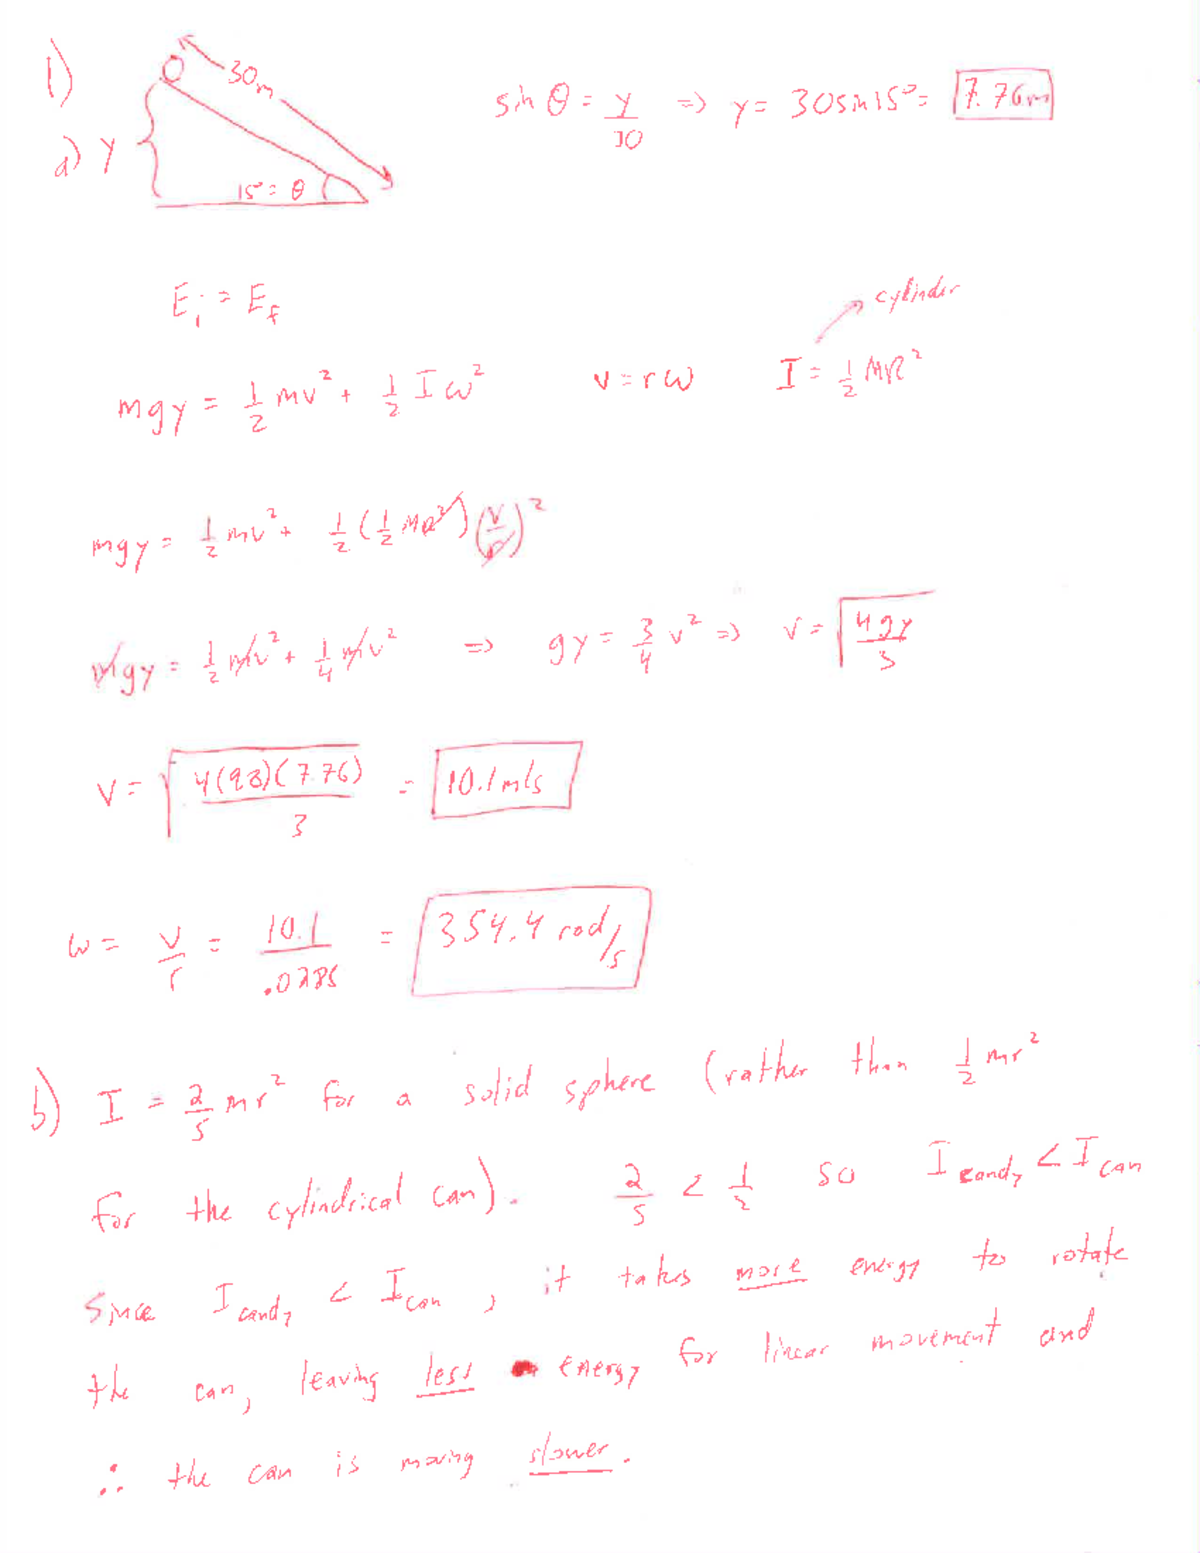 1)
30m
a) y
15° = θ
sin θ = y/30 => y = 30sin15° = 7.76m
E_i = E_f
cylinder
mgy = 1/2 mv² + 1/2 Iω² v = rω I = 1/2 MR²
mgy = 1/2 mv² + 1/2 (1/2 MR²)(v/R)²
mgy = 1/2 mv² + 1/4 mv² => gy = 3/4 v² => v = √(4gy/3)
v = √(4(9.8)(7.76)/3) = 10.1 m/s
ω = v/r = 10.1/.0285 = 354.4 rad/s
b) I = 2/5 mr² for a solid sphere (rather than 1/2 mr²
for the cylindrical can). 2/5 < 1/2 so I_candy < I_can
Since I_candy < I_can, it takes more energy to rotate
the can, leaving less energy for linear movement and
∴ the can is moving slower.